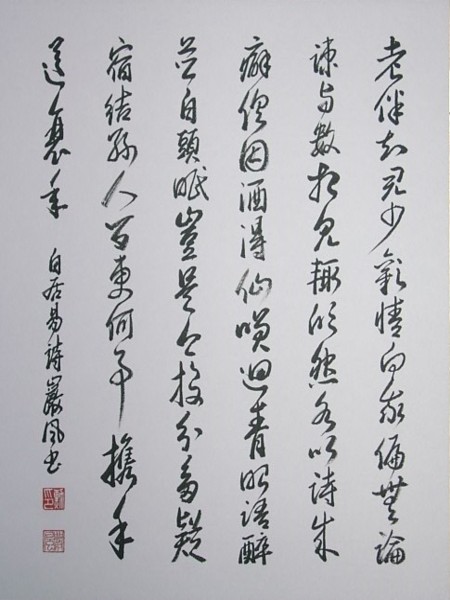 老伴知君少歡情向我偏無論
疎与數相見輒欣然各以詩成
癖俱因酒得仙咲迴青眼語醉
並白頭眠豈是今投分多疑
宿結緣人間更何事攜手
送衰年 白居易詩巖風书